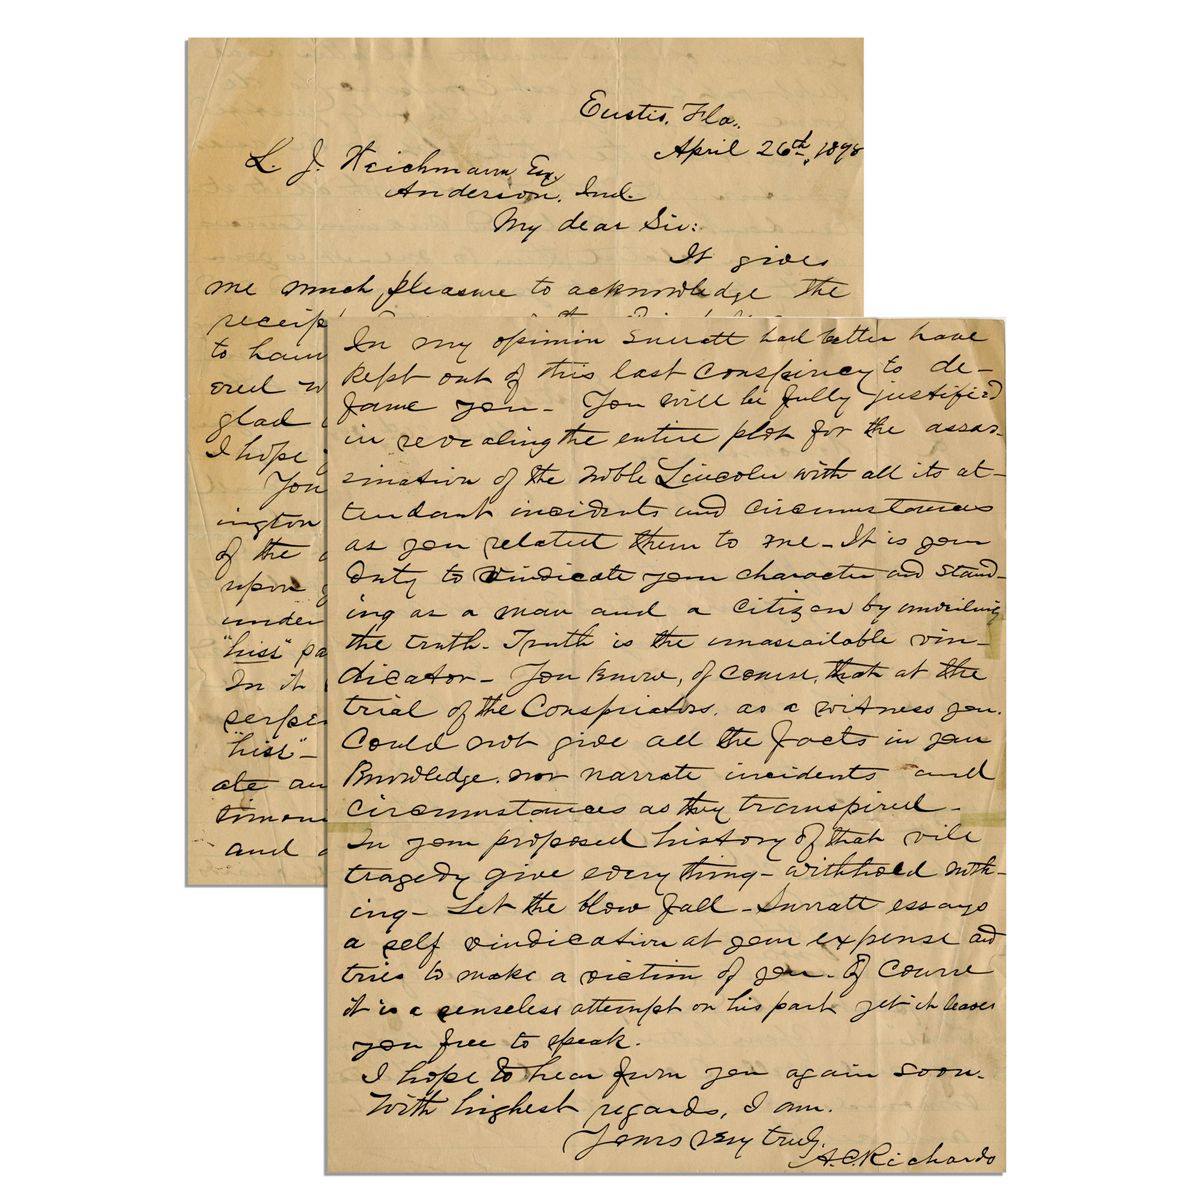 Eustis, Fla.,
April 26th, 1898
L. J. Weichmann Esq.
Anderson, Ind.
My dear Sir:
It gives
me much pleasure to acknowledge the
receip
to hav
ered w
glad
I hope
You
ington
of the
upon
under
"hiss" pa
In it
serpe
"hiss"-
ate an
timoni
and
In my opinion Surratt had better have
kept out of this last conspiracy to de-
fame you - You will be fully justified
in revealing the entire plot for the assas-
sination of the noble Lincoln with all its at-
tendant incidents and circumstances
as you related them to me - It is your
duty to vindicate your character and stand-
ing as a man and a citizen by unveiling
the truth - Truth is the unassailable vin-
dicator - You know, of course, that at the
trial of the Conspirators, as a witness you
could not give all the facts in your
knowledge, nor narrate incidents and
circumstances as they transpired -
In your proposed history of that vile
tragedy give every thing - withhold noth-
ing - Let the blow fall - Surratt essays
a self vindication at your expense and
tries to make a victim of you - Of course
it is a senseless attempt on his part yet it leaves
you free to speak.
I hope to hear from you again soon.
With highest regards, I am.
Yours very truly,
A.C. Richards